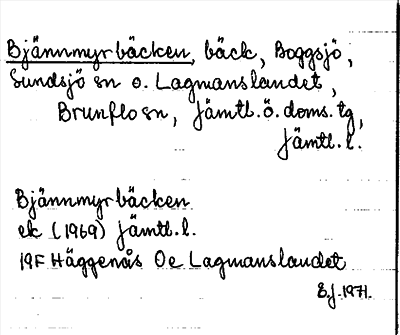 Bjännmyrbäcken, bäck, Boggsjö,
Sundsjö sn o. Lagmanslandet,
Brunflo sn, Jämtl. ö. doms. tg,
Jämtl. l.
Bjännmyrbäcken
ek (1969) Jämtl. l.
19F Häggenås 0e Lagmanslandet
EJ. 1971.